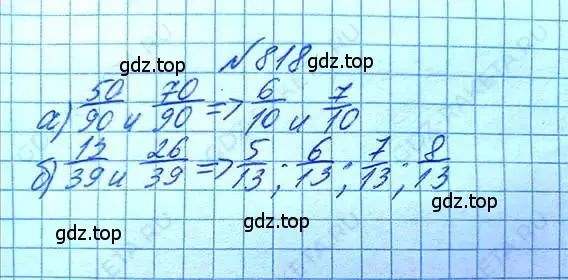 gdz.top
№ 818
gdz.top
а) 50/90 и 70/90 => 6/10 и 7/10
gdz.top
б) 13/39 и 26/39 => 5/13; 6/13; 7/13; 8/13
gdz.top
gdz.top
gdz.top